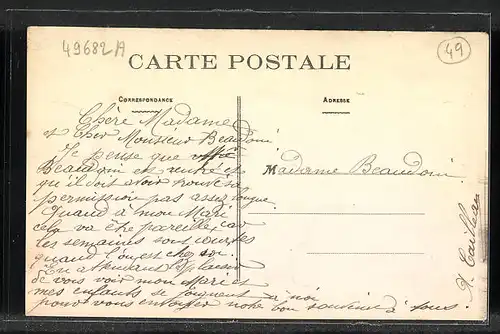 49682A
49
CARTE POSTALE
CORRESPONDANCE
ADRESSE
Chère Madame
et Cher Monsieur Beaudoin
Je pense que
Beaudoin est rentré et
qu'il doit avoir trouvé sa
permission pas assez longue
Quand à mon Mari
cela va être pareille, car
les semaines sont courtes
quand l'on est chez soi.
En attendant le plaisir
de vous voir mon Mari et
mes enfants se joignent à moi
pour vous envoyer notre bon souvenir à tous.
Madame Beaudoin